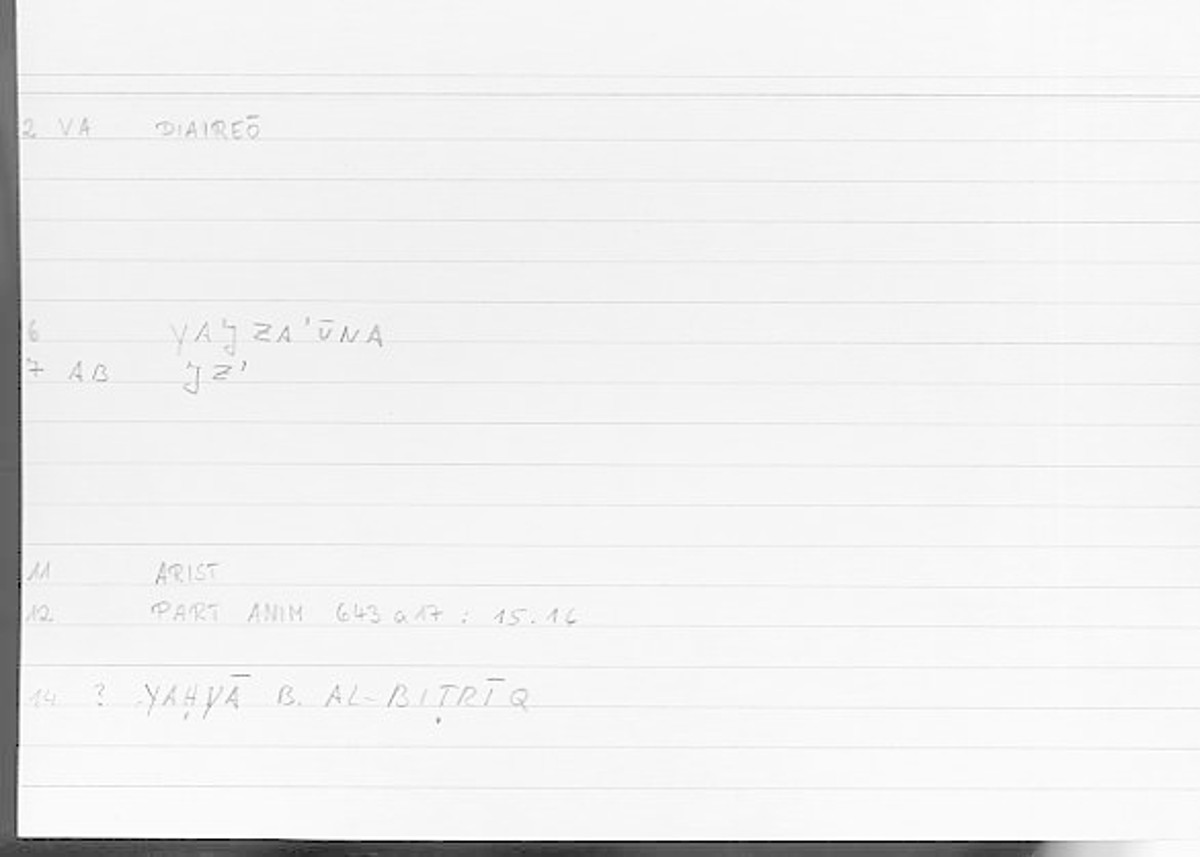 2 VA DIAIREŌ
6 YAǦZA'ŪNA
7 AB ǦZ'
11 ARIST
12 PART ANIM 643 a 17 : 15.16
14 ? YAḤYĀ B. AL-BIṬRĪQ